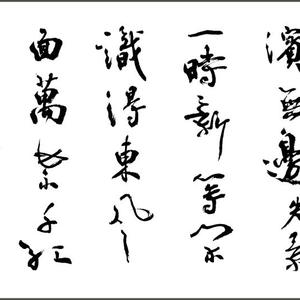 濱無邊光景
一時新等閒
識得東風
面萬紫千紅